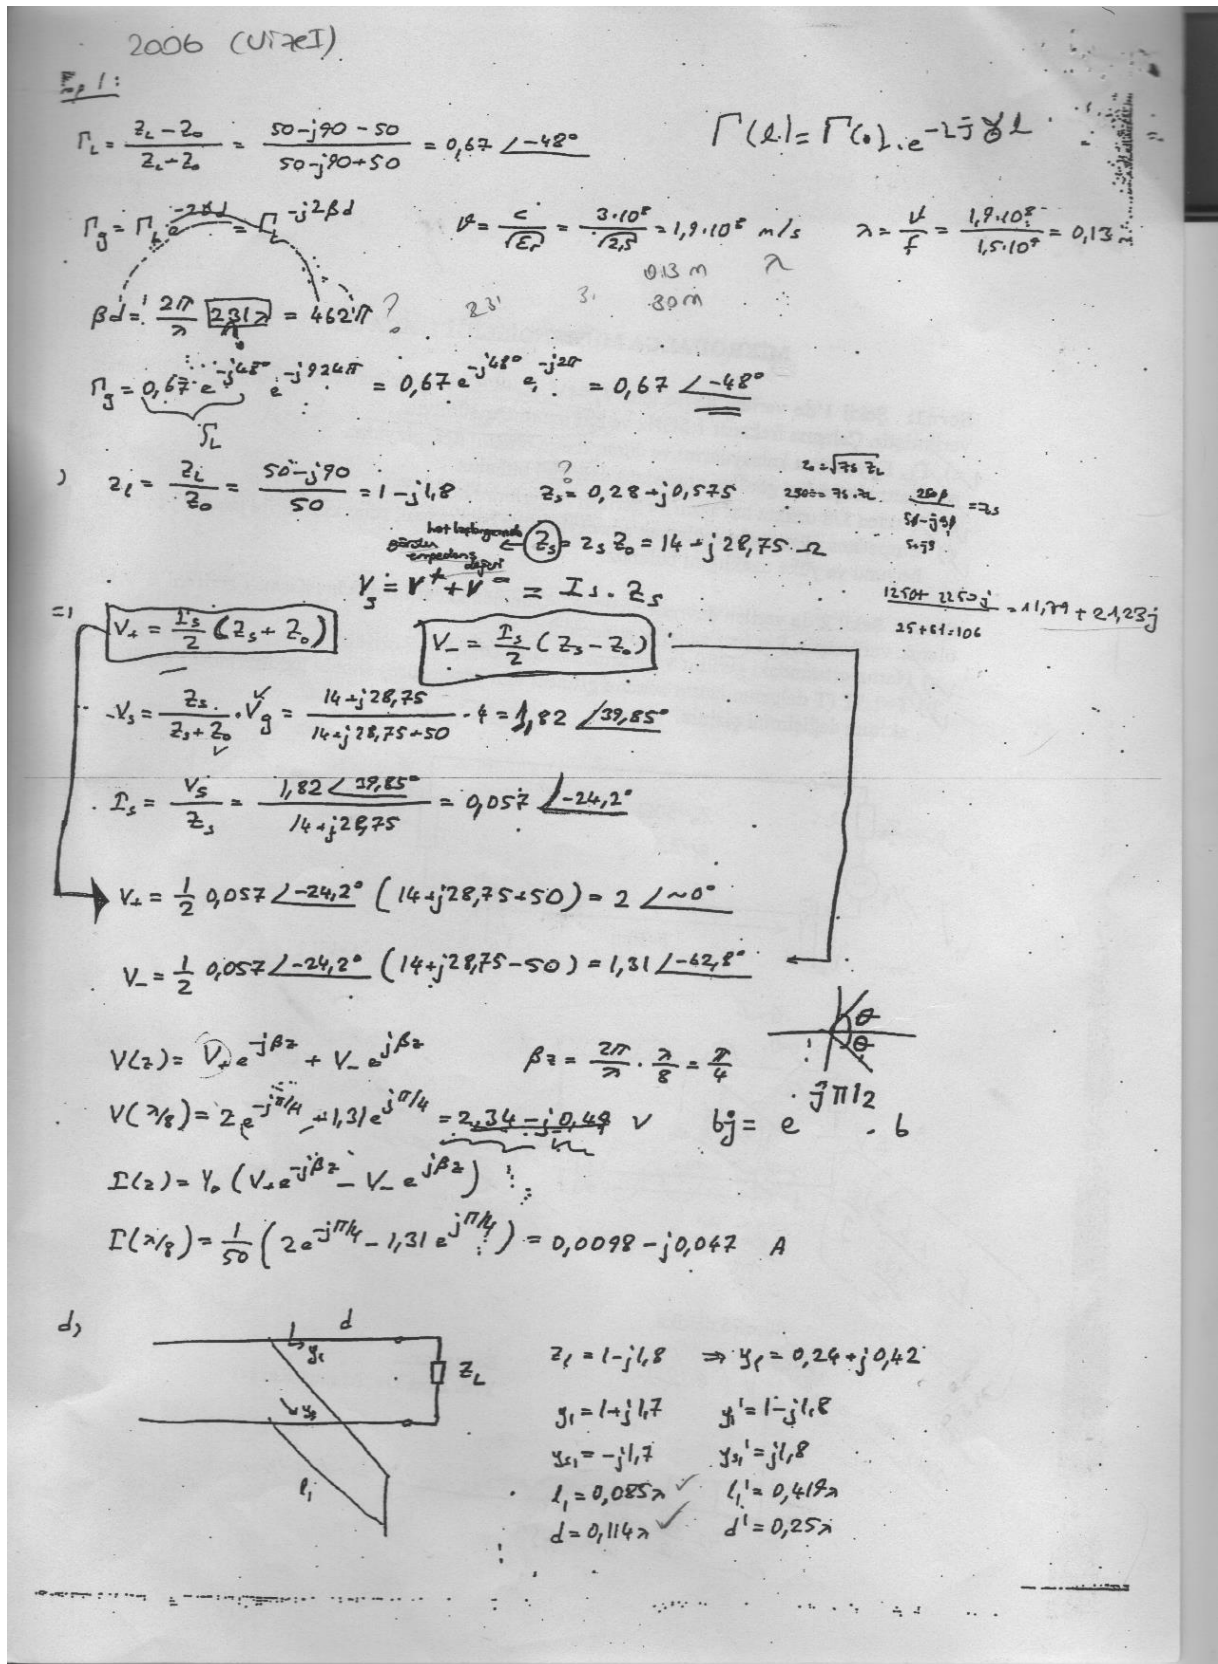 2006 (VizeI)
Γ_L = (Z_L - Z_0)/(Z_L - Z_0) = (50-j90-50)/(50-j90+50) = 0,67 ∠-48°
Γ(l) = Γ(0).e^-2jγl
Γ_g = Γ_L e^-2βd = Γ_L^-j2βd
ϑ = c/√εr = 3.10^8/√2,5 = 1,9.10^8 m/s
λ = v/f = 1,9.10^8/1,5.10^9 = 0,13
0.13 m λ
30 m
βd = 2π/λ 231λ = 462π ?
Γ_g = 0,67 e^-j48° e^-j924π = 0,67 e^-j48° e^-j2π = 0,67 ∠-48°
Γ_L
z_l = Z_L/Z_0 = (50-j90)/50 = 1-j1,8
?
z_s = 0,28+j0,575
Z_s = z_s Z_0 = 14+j28,75 Ω
V_s = V^+ + V^- = I_s . Z_s
=> V_+ = I_s/2 (Z_s + Z_0)
V_- = I_s/2 (Z_s - Z_0)
(1250+2250j)/(25+81=106) = 11,79 + 21,23j
V_s = Z_s/(Z_s+Z_0) . V_g = (14+j28,75)/(14+j28,75+50) . 4 = 1,82 ∠39,85°
I_s = V_s/Z_s = 1,82∠39,85°/(14+j28,75) = 0,057 ∠-24,2°
V_+ = 1/2 0,057∠-24,2° (14+j28,75+50) = 2 ∠~0°
V_- = 1/2 0,057∠-24,2° (14+j28,75-50) = 1,31 ∠-62,8°
θ
θ
V(z) = V_+ e^-jβz + V_- e^jβz
βz = 2π/λ . λ/8 = π/4
V(λ/8) = 2e^-jπ/4 + 1,31e^jπ/4 = 2,34 - j0,49 V
bj = e^jπ/2 . b
I(z) = Y_0 (V_+ e^-jβz - V_- e^jβz)
I(λ/8) = 1/50 (2e^-jπ/4 - 1,31e^jπ/4) = 0,0098 - j0,047 A
d)
d
y_1
Z_L
l_1
z_l = 1-j1,8 ⇒ y_l = 0,24+j0,42
y_1 = 1+j1,7 y_1' = 1-j1,8
y_s1 = -j1,7 y_s1' = j1,8
l_1 = 0,085λ ✓ l_1' = 0,419λ
d = 0,114λ ✓ d' = 0,25λ